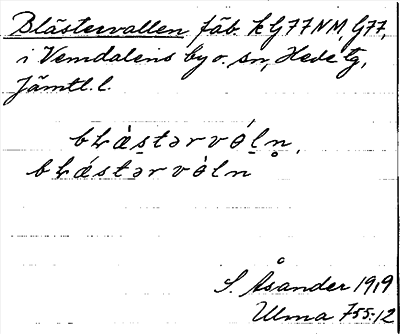 Blästervallen fäb. k G77NM, G77,
i Vemdalens by o. sn, Hede tg,
Jämtl. l.
bḷàstərvóln̥,
bḷástərvòln
S. Åsander 1919
Ulma 755:12